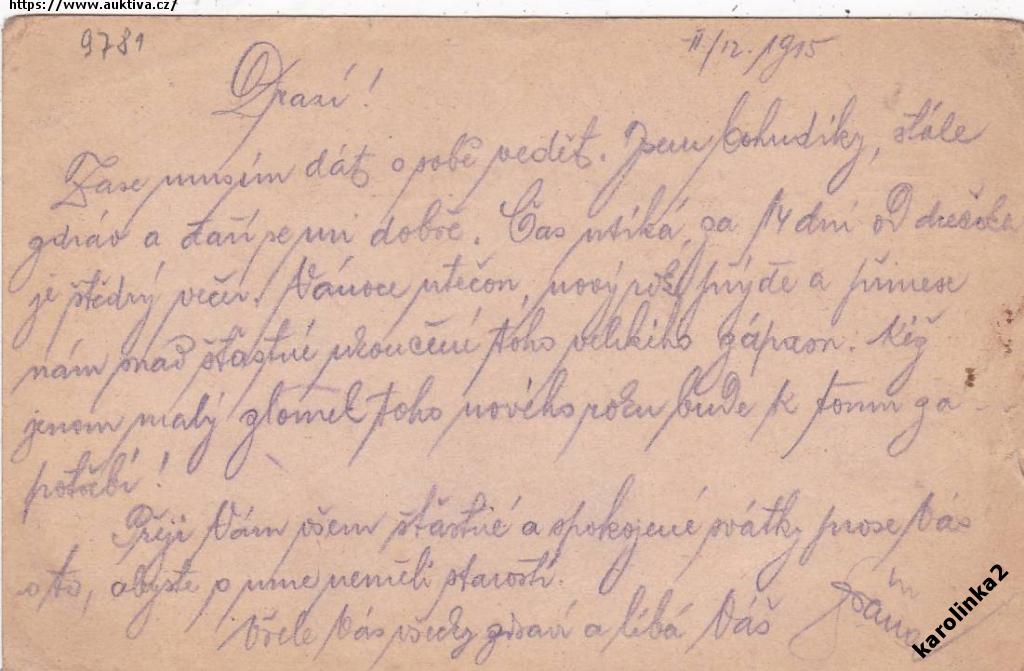 https://www.auktiva.cz/
9781
11/12. 1915
Drazí!
Zase musím dát o sobě vedět. Jsem bohudíky, stále
zdráv a daří se mi dobře. Čas utíká, za 14 dní od dneška
je štědrý večer. Vánoce utečou, nový rok přijde a přinese
nám snad šťastné ukončení toho velikého zápasu. Kéž
jenom malý zlomek toho nového roku bude k tomu za-
potřebí!
Přeji Vám všem šťastné a spokojené svátky prose Vás
o to, abyste o mne neměli starosti.
Vřele Vás všecky zdraví a líbá Váš
karolinka2